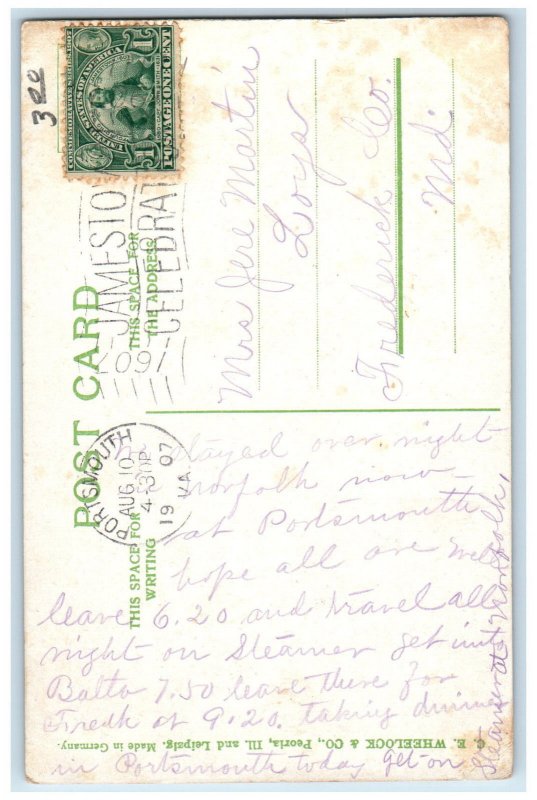 322
UNITED STATES OF AMERICA
POSTAGE ONE CENT
1 1
POST CARD
THIS SPACE FOR
THE ADDRESS
JAMESTOW
CELEBRAT
PORTSMOUTH
AUG 10
4-30P
19 07
VA.
Mrs Jere Martin
Loys
Frederick Co.
Md.
THIS SPACE FOR
WRITING
stayed over night
Norfolk now
at Portsmouth
hope all are well
leave 6.20 and travel all
night on Steamer get into
Balto 7.50 leave there for
Fredk at 9.20. taking dinner
in Portsmouth today get on
Steamer at Norfolk,
C. E. WHEELOCK & CO., Peoria, Ill. and Leipsig. Made in Germany.